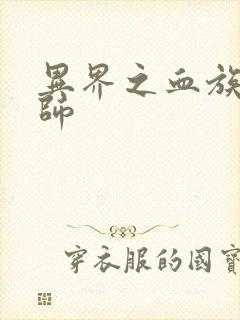 異界之血族
師
穿衣服的國寶